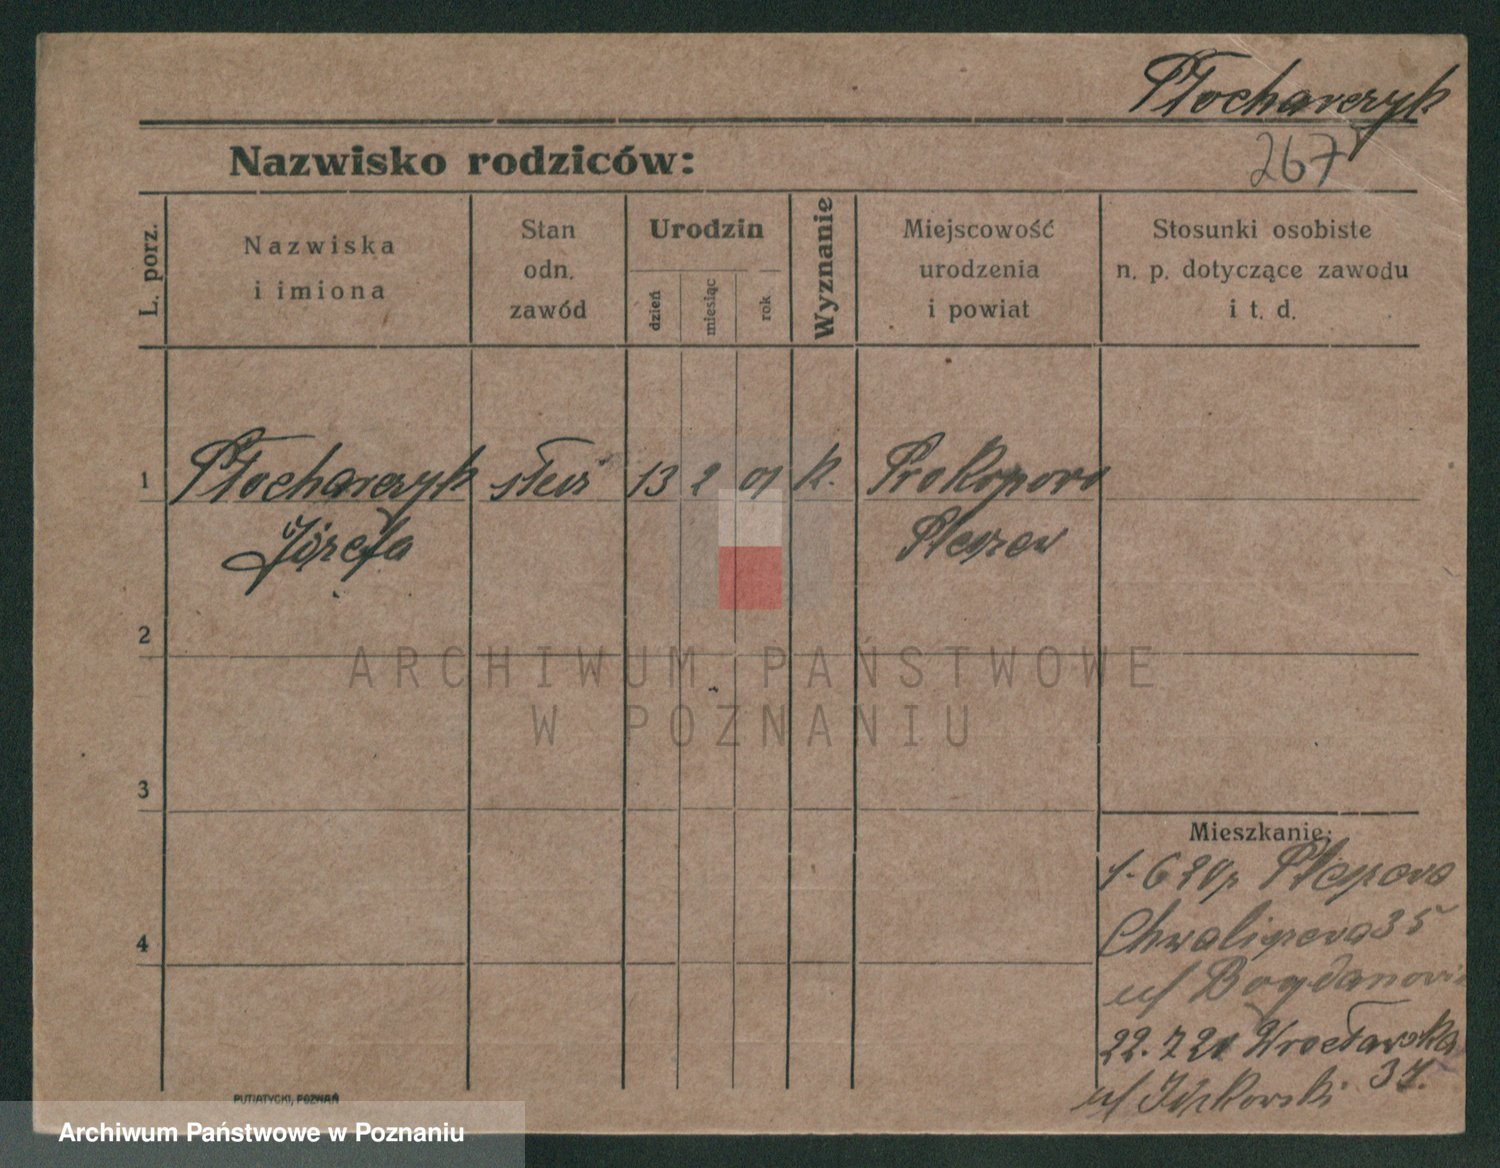 Płocharczyk
267
Nazwisko rodziców:
L. porz.
Nazwiska
i imiona
Stan
odn.
zawód
Urodzin
dzień
miesiąc
rok
Wyznanie
Miejscowość
urodzenia
i powiat
Stosunki osobiste
n. p. dotyczące zawodu
i t. d.
1 Płocharczyk służ 13 2 01 k. Prokopowo
Józefa Pleszew
2
3
4
ARCHIWUM PAŃSTWOWE
W POZNANIU
Mieszkanie:
Pleszewa
35
u/
22. 7 Wrocławska
37.
u/
PUTIATYCKI, POZNAŃ
Archiwum Państwowe w Poznaniu